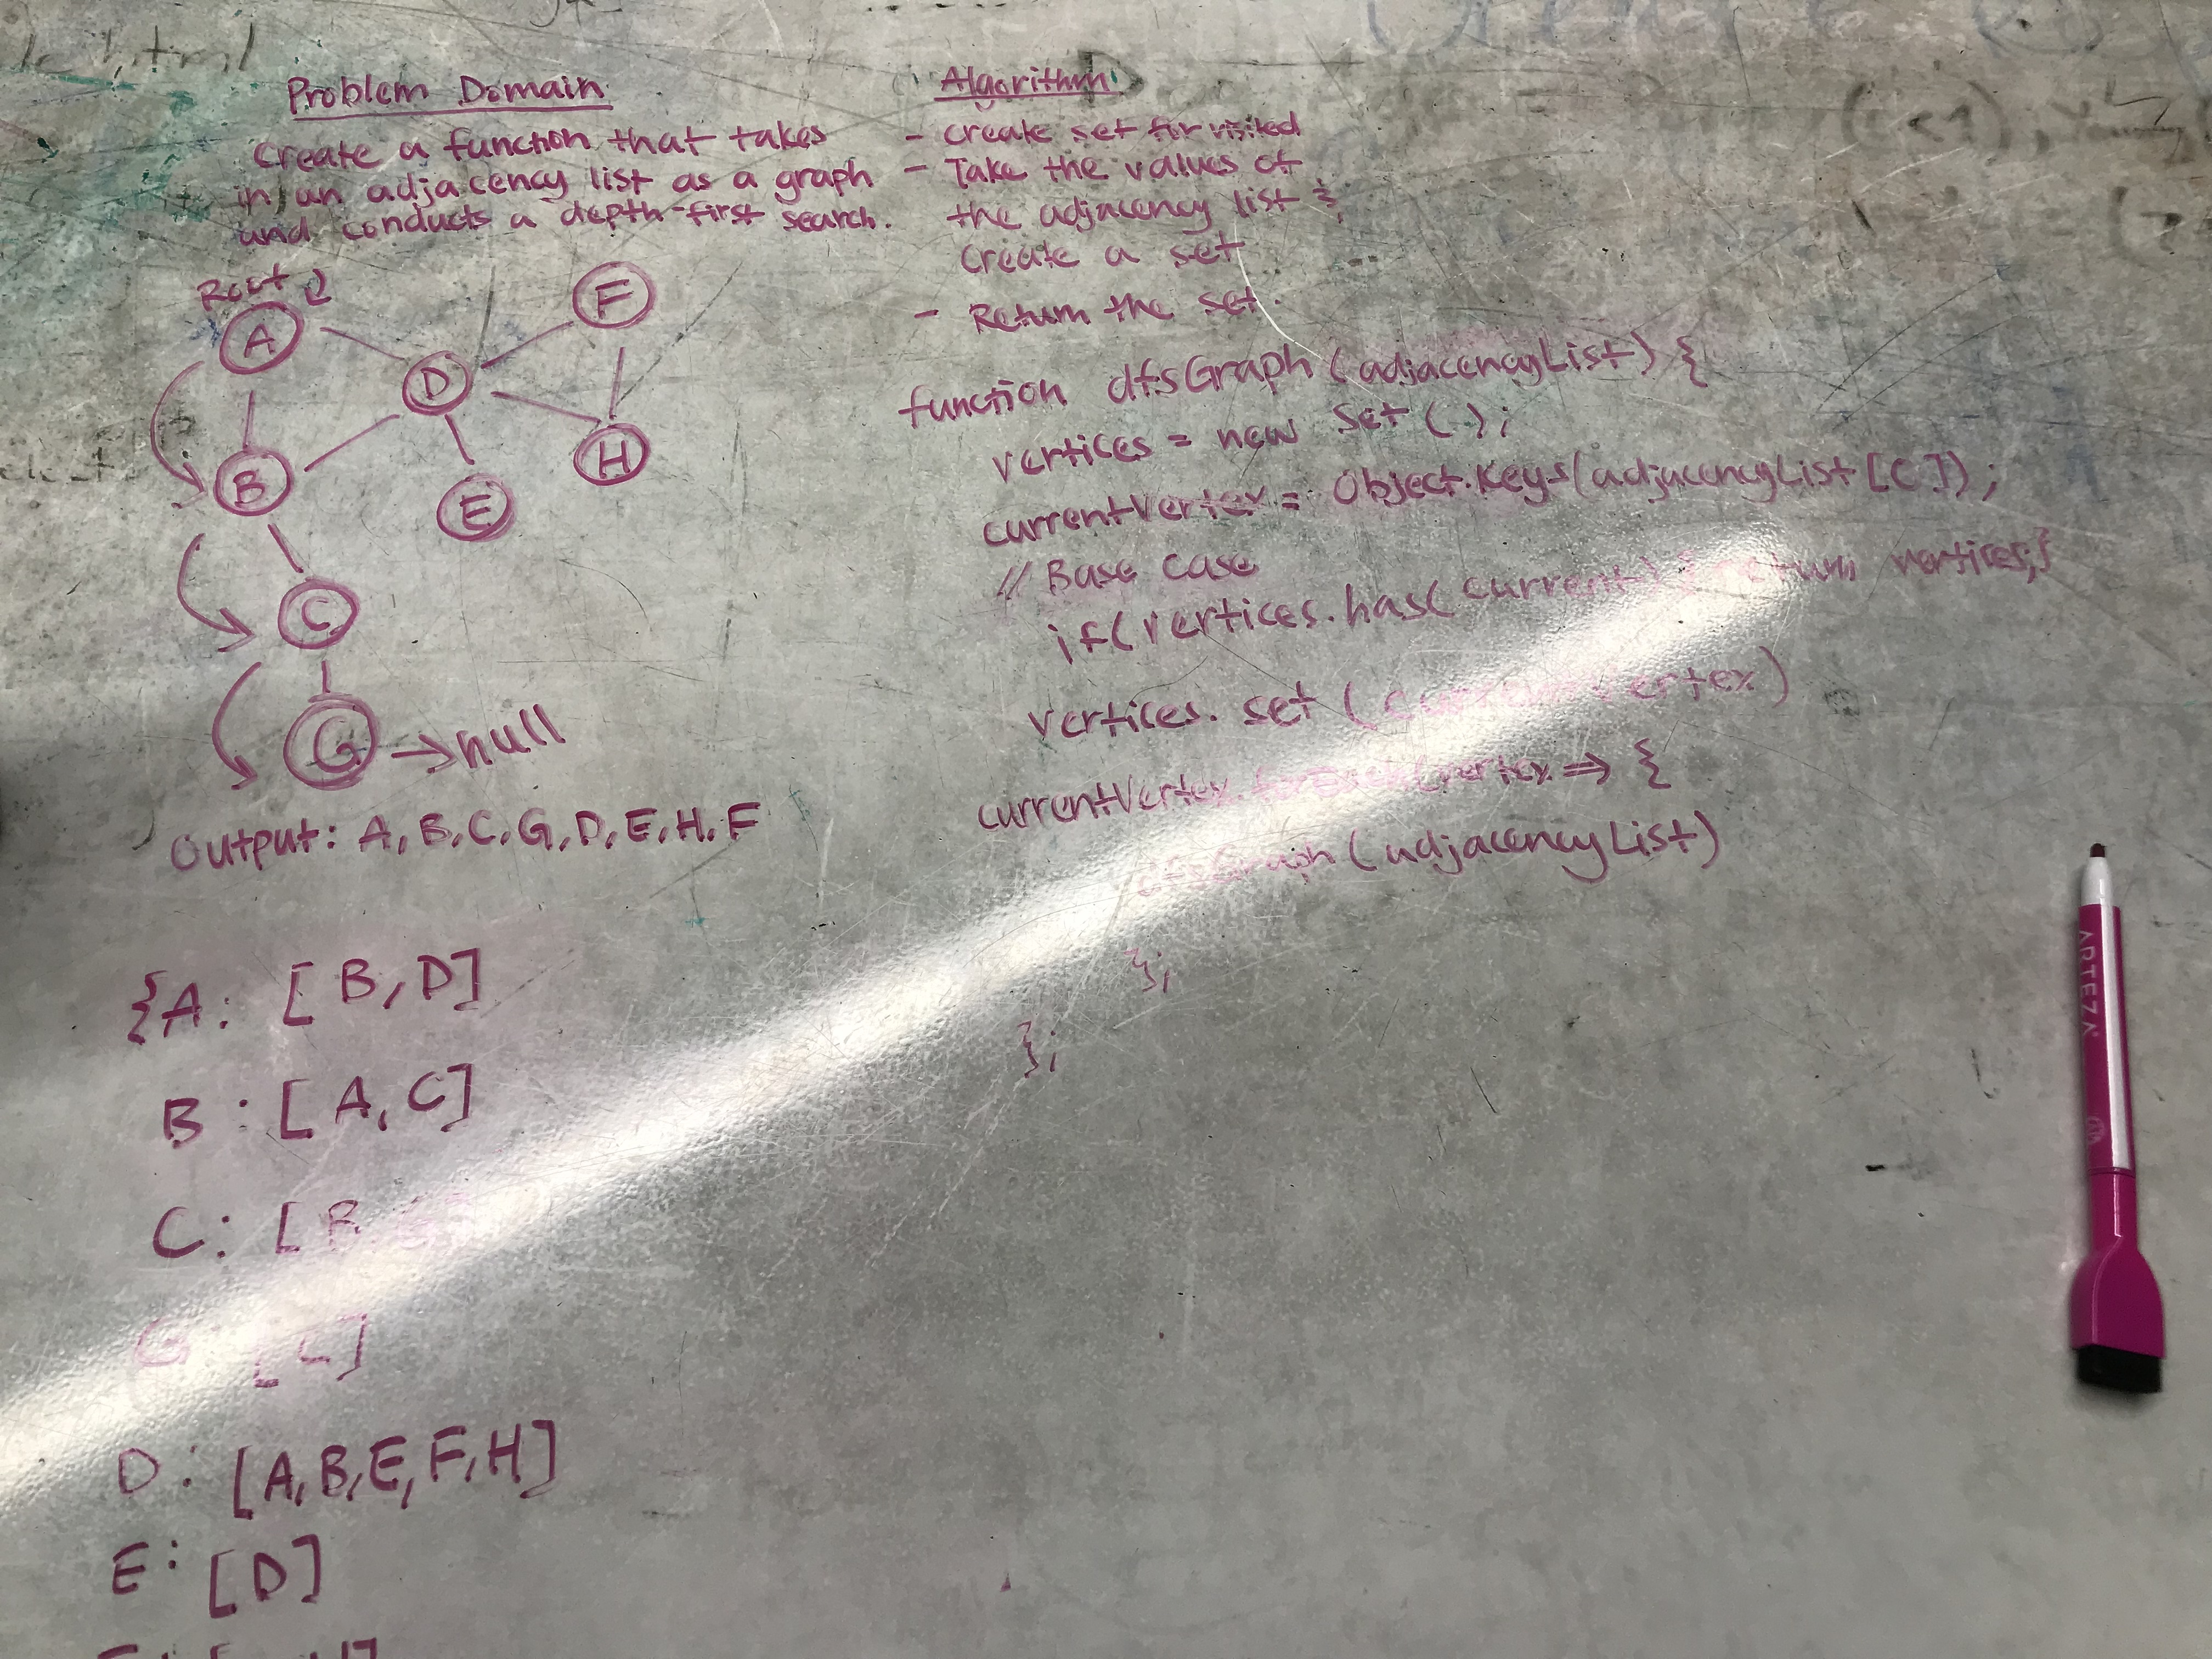 Problem Domain
Create a function that takes
in an adjacency list as a graph
and conducts a depth-first search.
Root
A
B
C
G → null
D
E
F
H
Output: A, B, C, G, D, E, H, F
{A: [B, D]
B: [A, C]
C: [B, G]
G [C]
D: [A, B, E, F, H]
E: [D]
Algorithm
- create set for visited
- Take the values of
the adjacency list &
create a set
- Return the set.
function dfsGraph (adjacencyList) {
vertices = new Set ( );
currentVertex = Object.Keys(adjacencyList [C]);
// Base Case
if(vertices.has(current) { return vertices;}
vertices. set (currentVertex)
currentVertex.forEach(vertex => {
dfsGraph (adjacencyList)
};
};
ARTEZA
.html